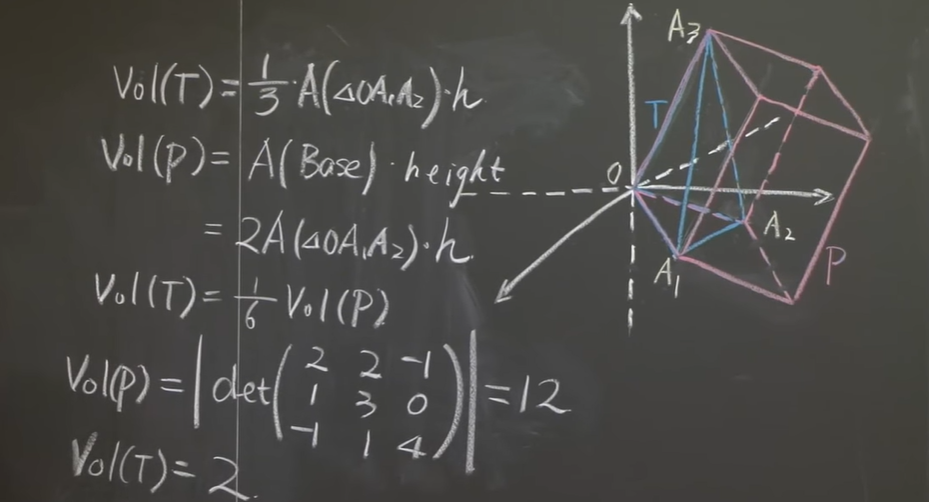 Vol(T) = 1/3 · A(△OA₁A₂) · h
Vol(P) = A(Base) · height
= 2A(△OA₁A₂) · h
Vol(T) = 1/6 Vol(P)
Vol(P) = | det ( 2 2 -1
1 3 0
-1 1 4 ) | = 12
Vol(T) = 2.
A₃
T
O
A₂
A₁
P